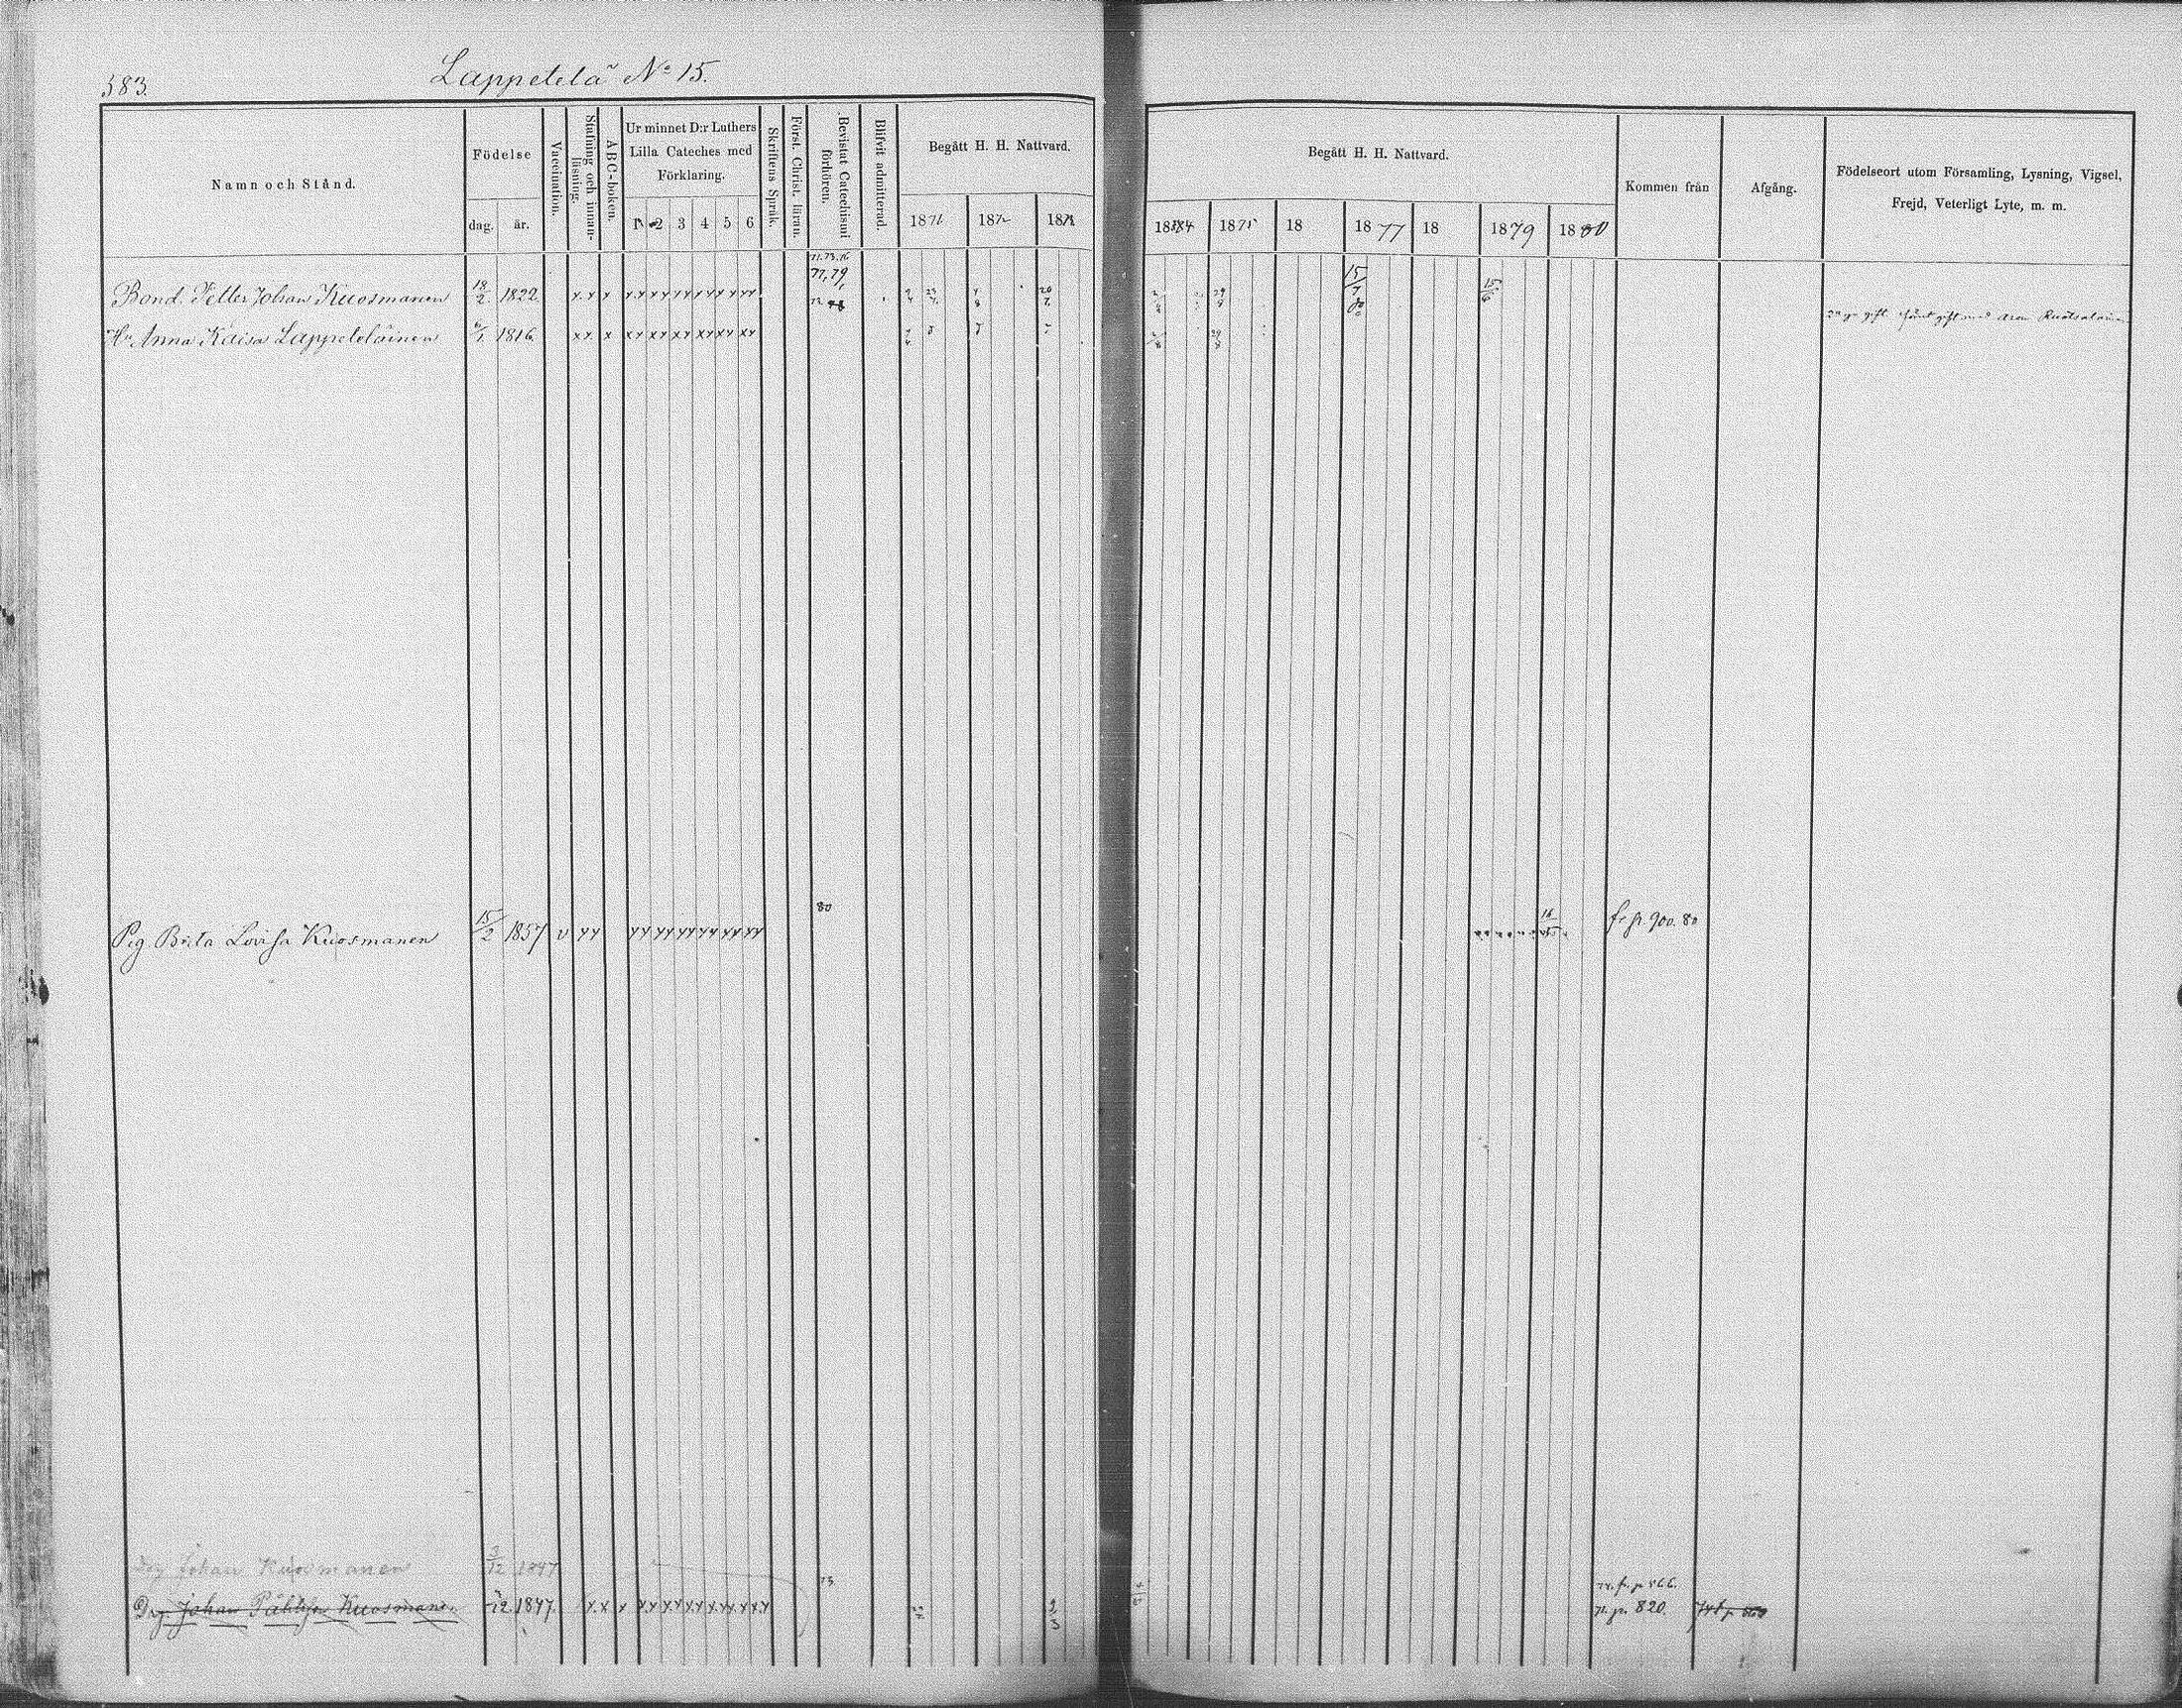 583.
Lappetelä No 15.
Namn och Stånd.
Födelse
dag.
år.
Vaccination.
Stafning och innanläsning.
ABC-boken.
Ur minnet D:r Luthers
Lilla Cateches med
Förklaring.
1 2 3 4 5 6
Skriftens Språk.
Först. Christ. läran.
Bevistat Catechismi förhören.
Blifvit admitterad.
Begått H. H. Nattvard.
1871 1872 187
Begått H. H. Nattvard.
1874 1875 18 1877 18 1879 1880
Kommen från
Afgång.
Födelseort utom Församling, Lysning, Vigsel,
Frejd, Veterligt Lyte, m. m.
77, 79,
Bond. Petter Johan Kuosmanen 18/2 1822 x x x x x x x x x x x x x x x 15/7
Hu Anna Kaisa Lappeteläinen 6/1 1816 x x x x x x x x x x x x x x x
80
Pig Brita Lovisa Kuosmanen 15/2 1857 v x x x x x x x x x x x x x x fr p. 900. 80
Drg Johan Kuosmanen 3/12 1847
73
Drg. Johan Påhlsson Kuosmanen 12 1847 x x x x x x x x x x x x x x x 9/3
fr. p 866.
p. 820.